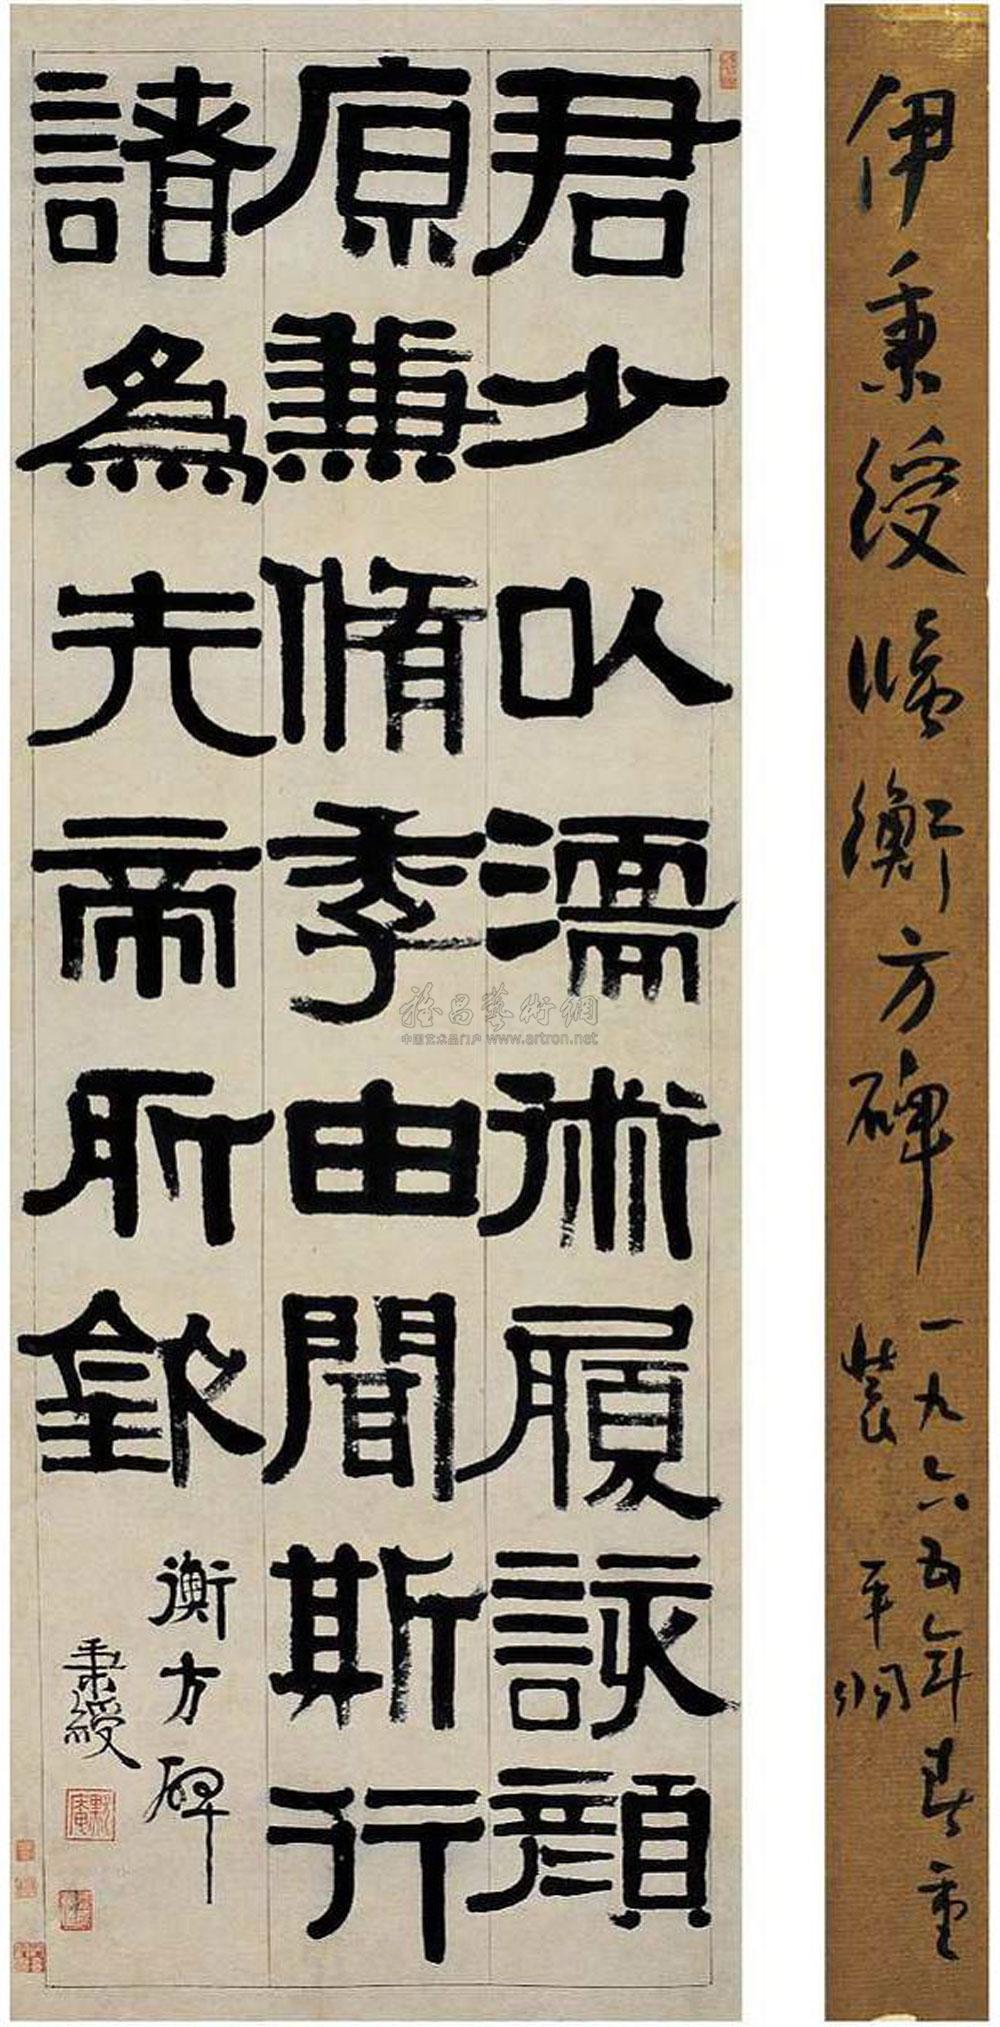 君少以濡術履詠顔
原兼脩季由聞斯行
諸為先帝所欽
衡方碑
秉綬
伊秉綬臨衡方碑
一九六五年春重
裝 平
雅昌藝術網
中国艺术品门户 www.artron.net